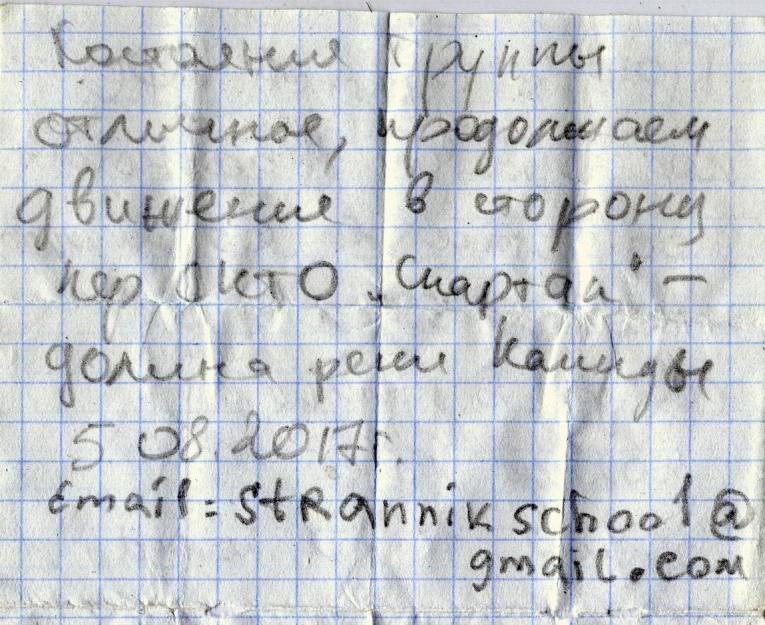 Состояние группы
отличное, продолжаем
движение в сторону
пер ОКТО „Спартак" —
долина реки
5 08.2017г.
Email: strannikschool@
gmail.com